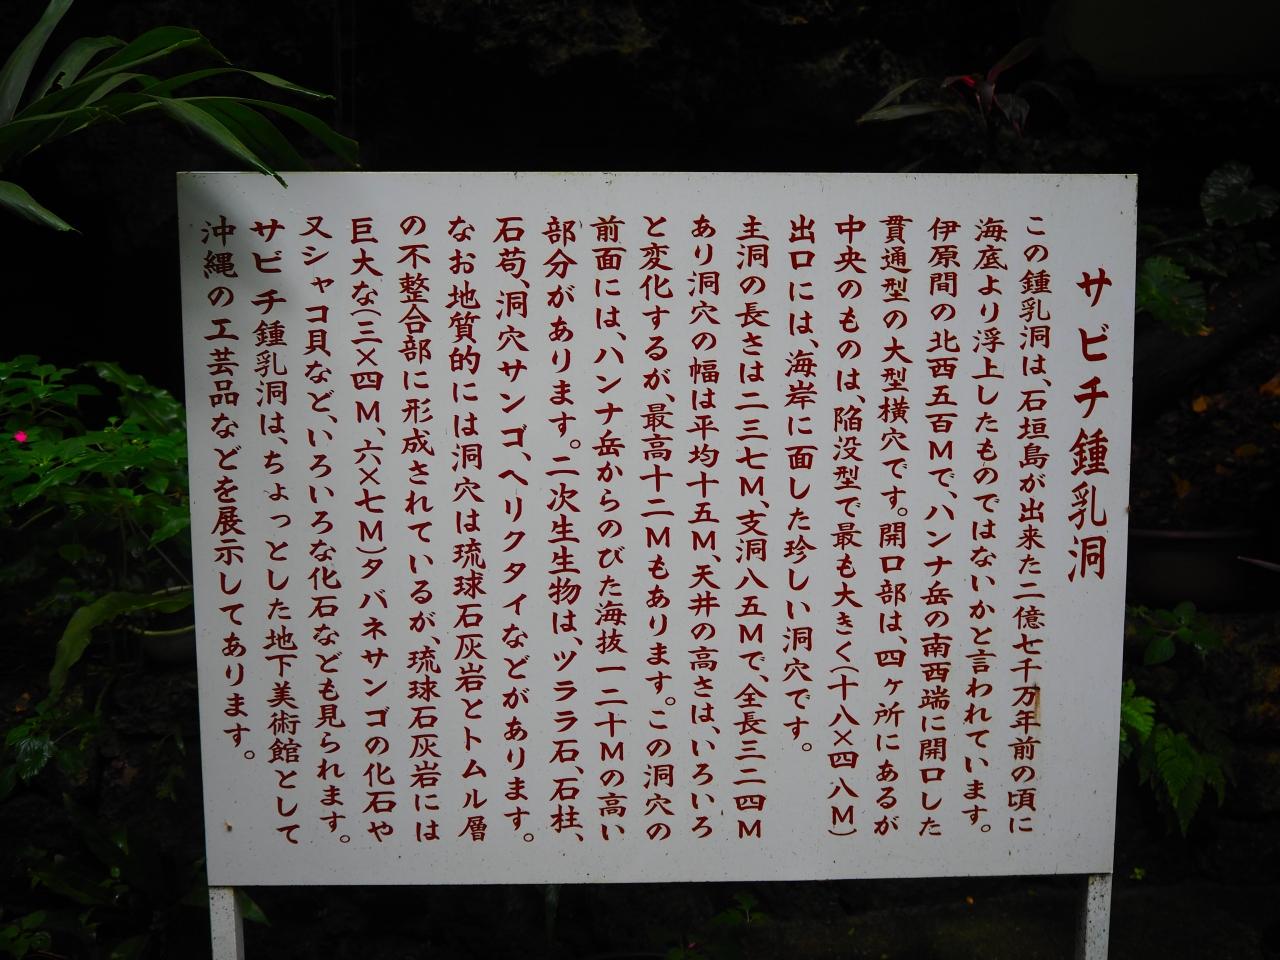 サビチ鍾乳洞
この鍾乳洞は、石垣島が出来た二億七千万年前の頃に
海底より浮上したものではないかと言われています。
伊原間の北西五百Mで、ハンナ岳の南西端に開口した
貫通型の大型横穴です。開口部は、四ヶ所にあるが
中央のものは、陥没型で最も大きく(十八×四八M)
出口には、海岸に面した珍しい洞穴です。
主洞の長さは二三七M、支洞八五Mで、全長三二四M
あり洞穴の幅は平均十五M、天井の高さは、いろいろ
と変化するが、最高十二Mもあります。この洞穴の
前面には、ハンナ岳からのびた海抜一二十Mの高い
部分があります。二次生生物は、ツララ石、石柱、
石苟、洞穴サンゴ、ヘリクタイなどがあります。
なお地質的には洞穴は琉球石灰岩とトムル層
の不整合部に形成されているが、琉球石灰岩には
巨大な(三×四M、六×七M)タバネサンゴの化石や
又シャコ貝など、いろいろな化石なども見られます。
サビチ鍾乳洞は、ちょっとした地下美術館として
沖縄の工芸品などを展示してあります。